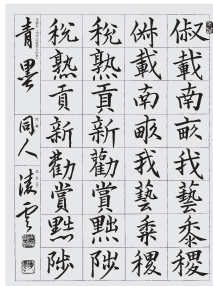 俶載南畝我藝黍稷
俶載南畝我藝黍稷
稅熟貢新勸賞黜陟
稅熟貢新勸賞黜陟
青墨 同人